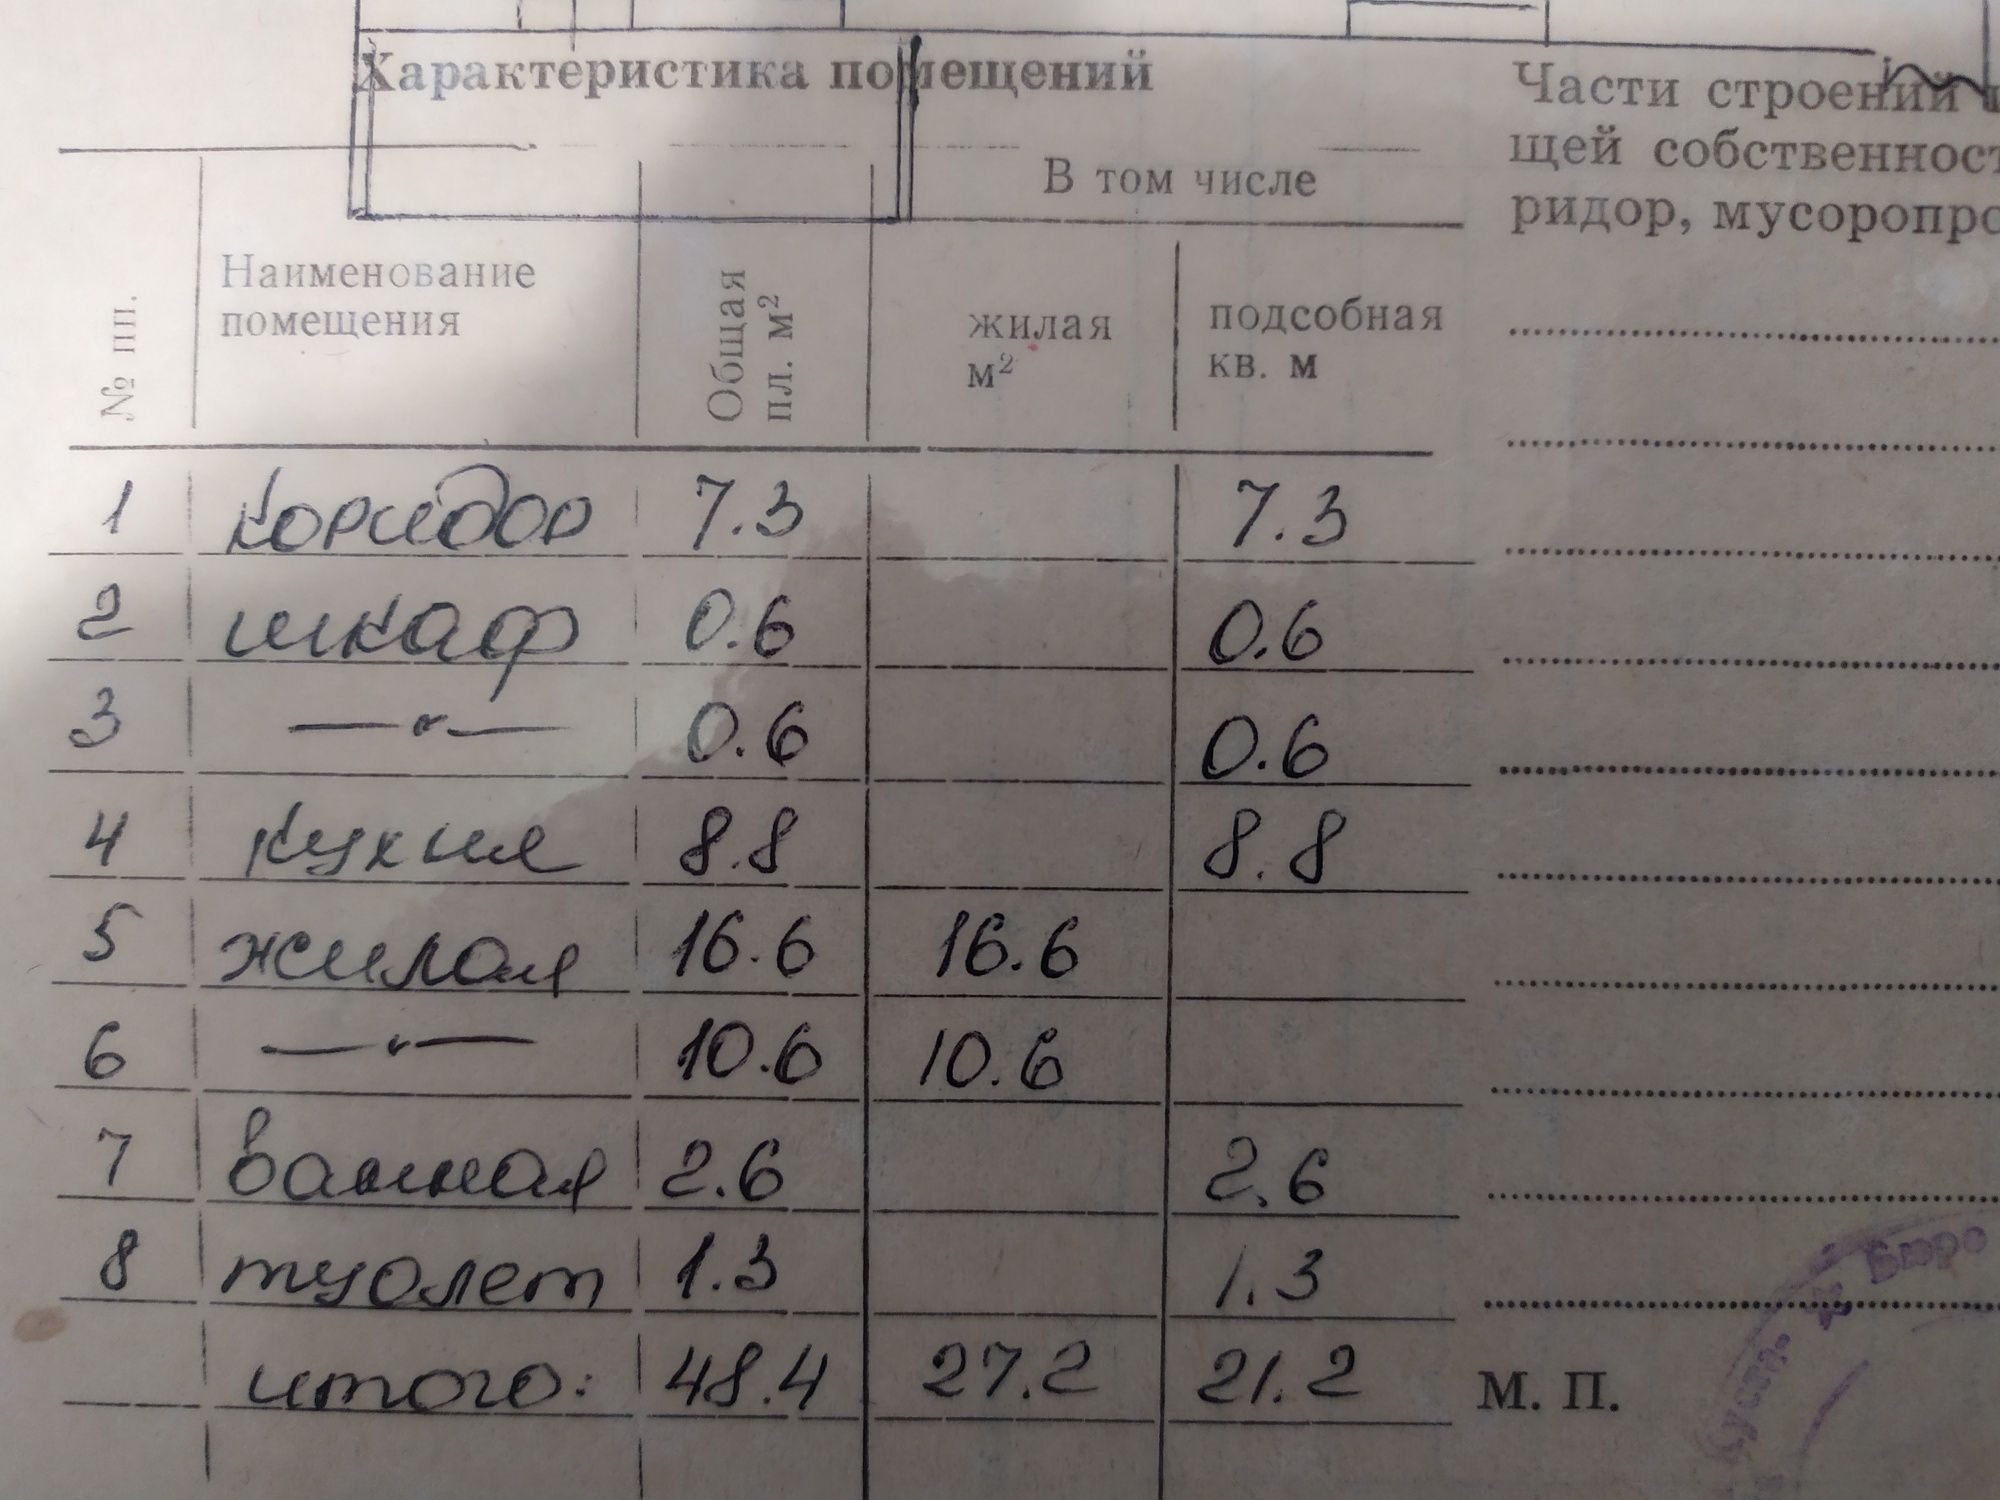 Характеристика помещений
№ пп.
Наименование
помещения
Общая
пл. м²
В том числе
жилая
м²
подсобная
кв. м
1 коридор 7.3 7.3
2 шкаф 0.6 0.6
3 —"— 0.6 0.6
4 кухня 8.8 8.8
5 жилая 16.6 16.6
6 —"— 10.6 10.6
7 ванная 2.6 2.6
8 туалет 1.3 1.3
итого: 48.4 27.2 21.2
Части строений
щей собственност
ридор, мусоропро
М. П.
Бюро